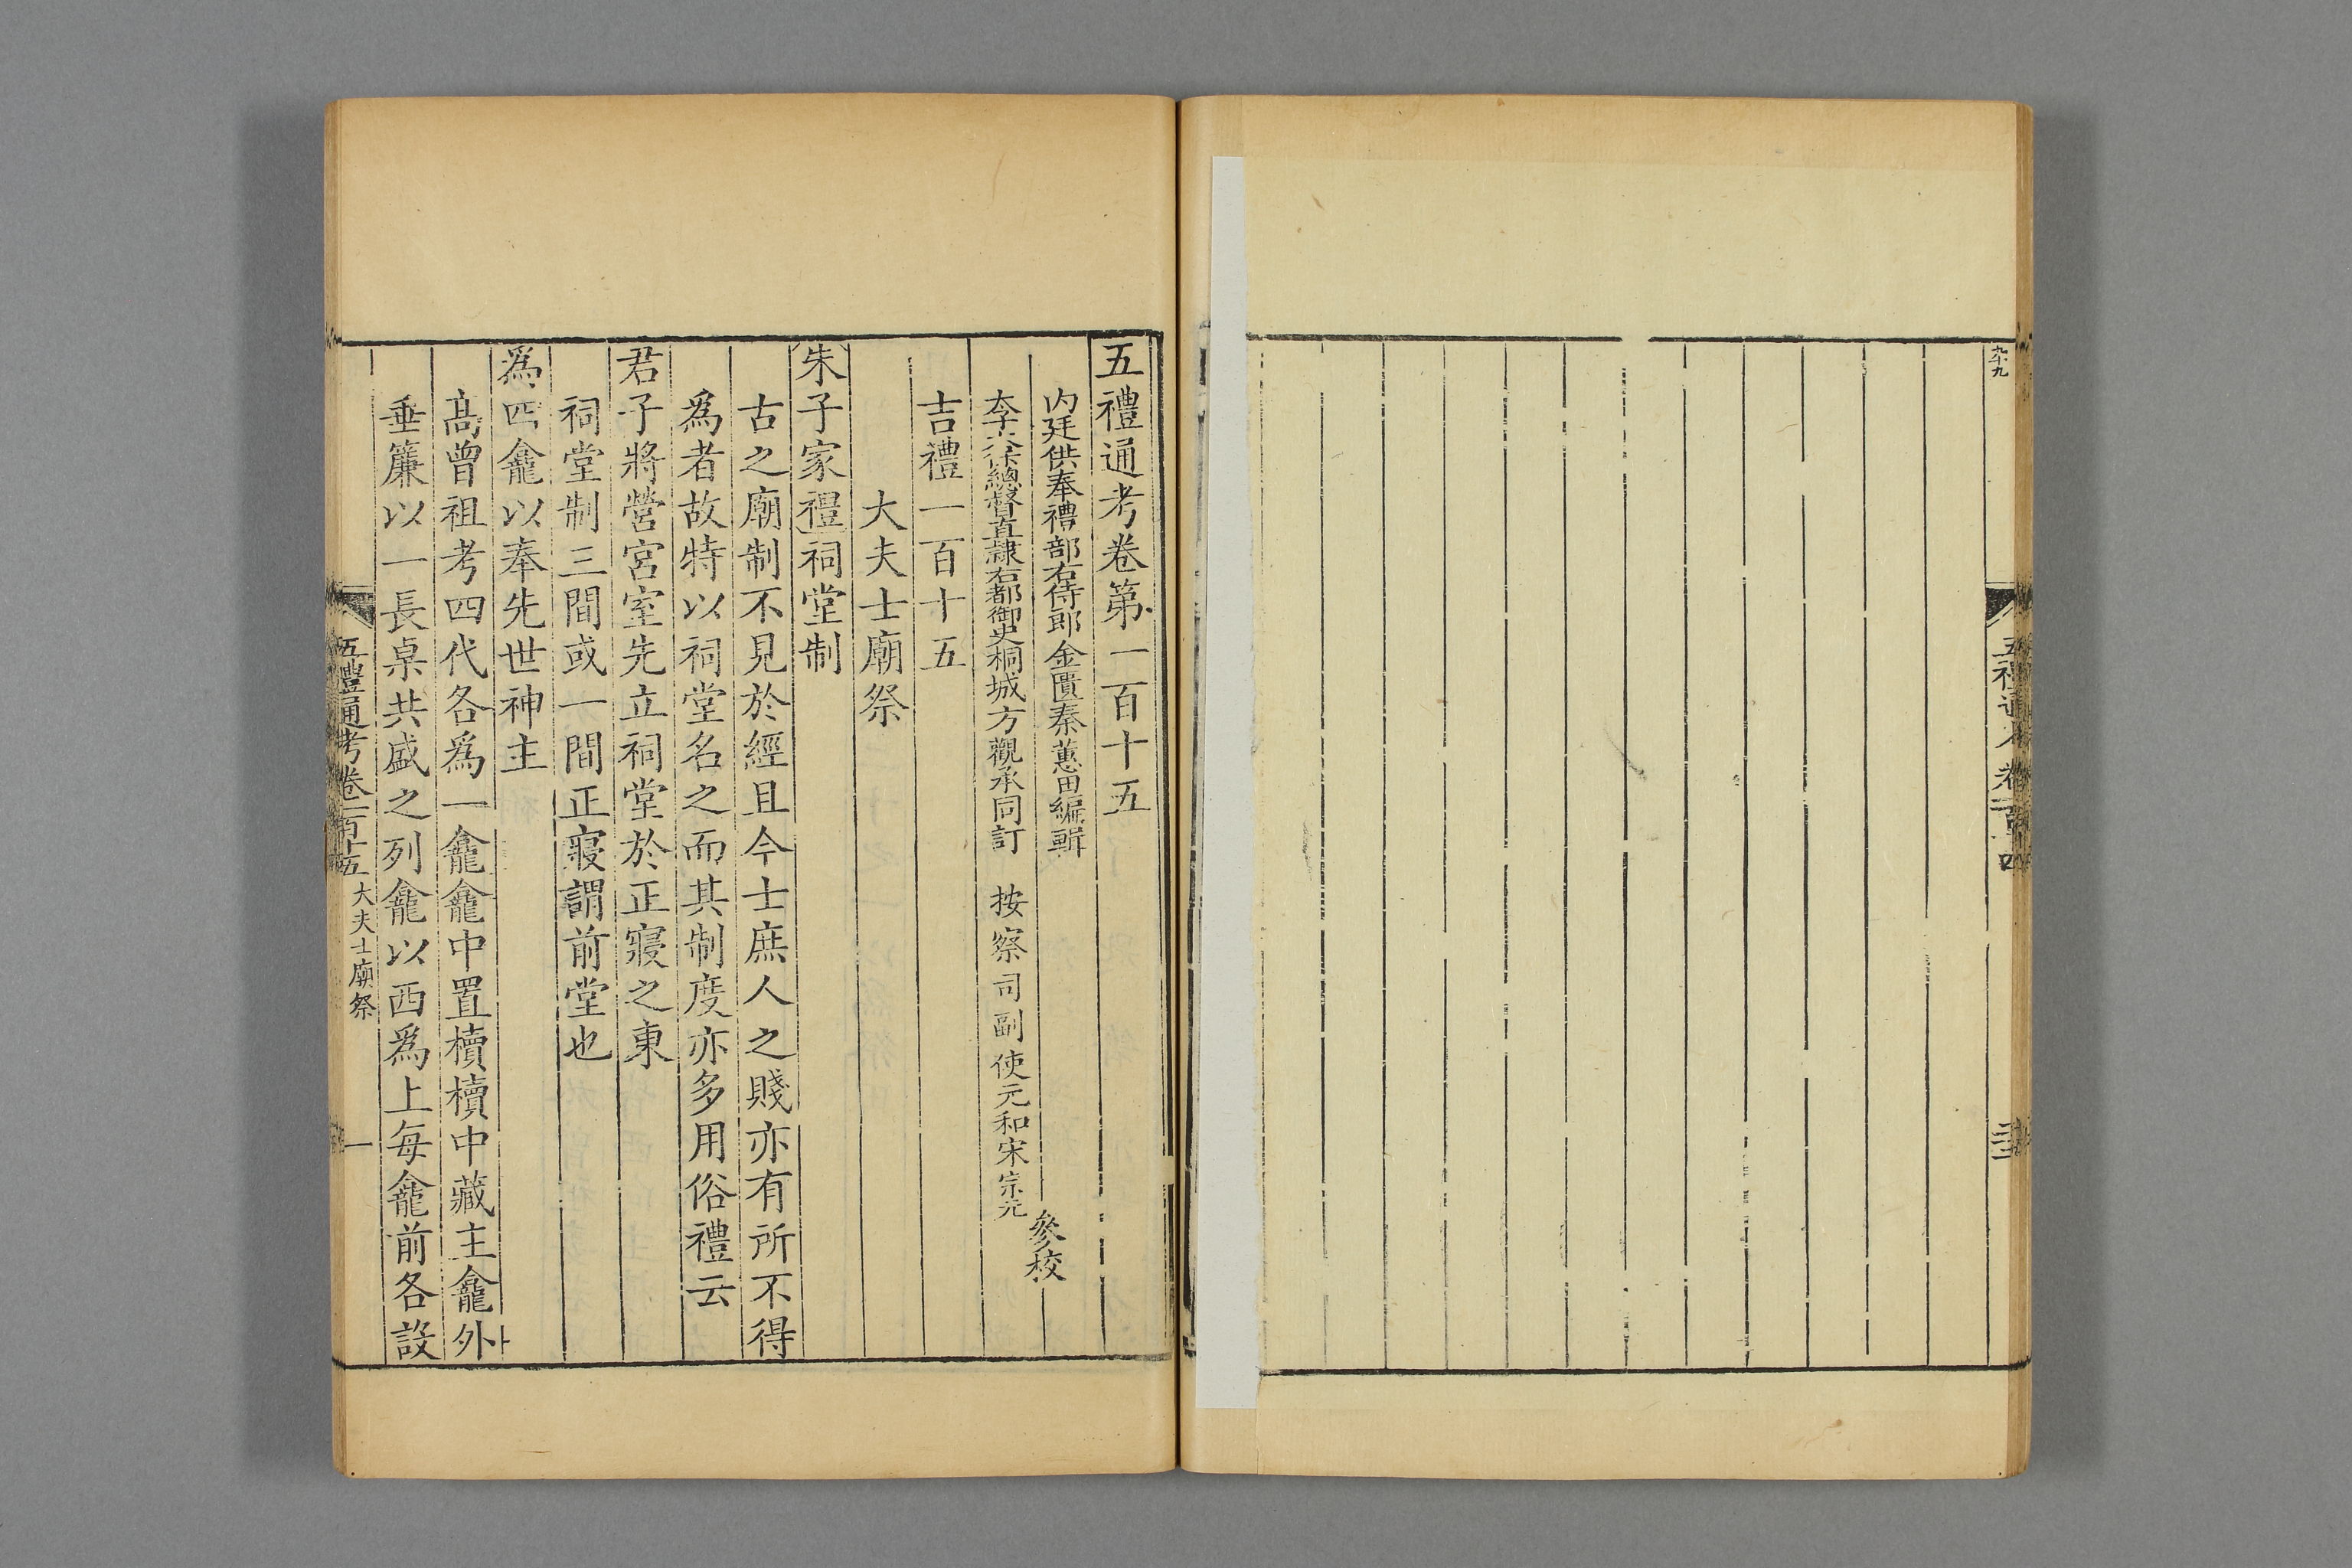 五禮通考卷第一百十五
内廷供奉禮部右侍郎金匱秦蕙田編輯
太子太保總督直隸右都御史桐城方觀承同訂
按察司副使元和宋宗元參校
吉禮一百十五
大夫士廟祭
朱子家禮祠堂制
古之廟制不見於經且今士庶人之賤亦有所不得
爲者故特以祠堂名之而其制度亦多用俗禮云
君子將營宮室先立祠堂於正寢之東
祠堂制三間或一間正寢謂前堂也
爲四龕以奉先世神主
高曾祖考四代各爲一龕龕中置櫝櫝中藏主龕外
垂簾以一長桌共盛之列龕以西爲上每龕前各設
五禮通考卷一百十五 大夫士廟祭 一